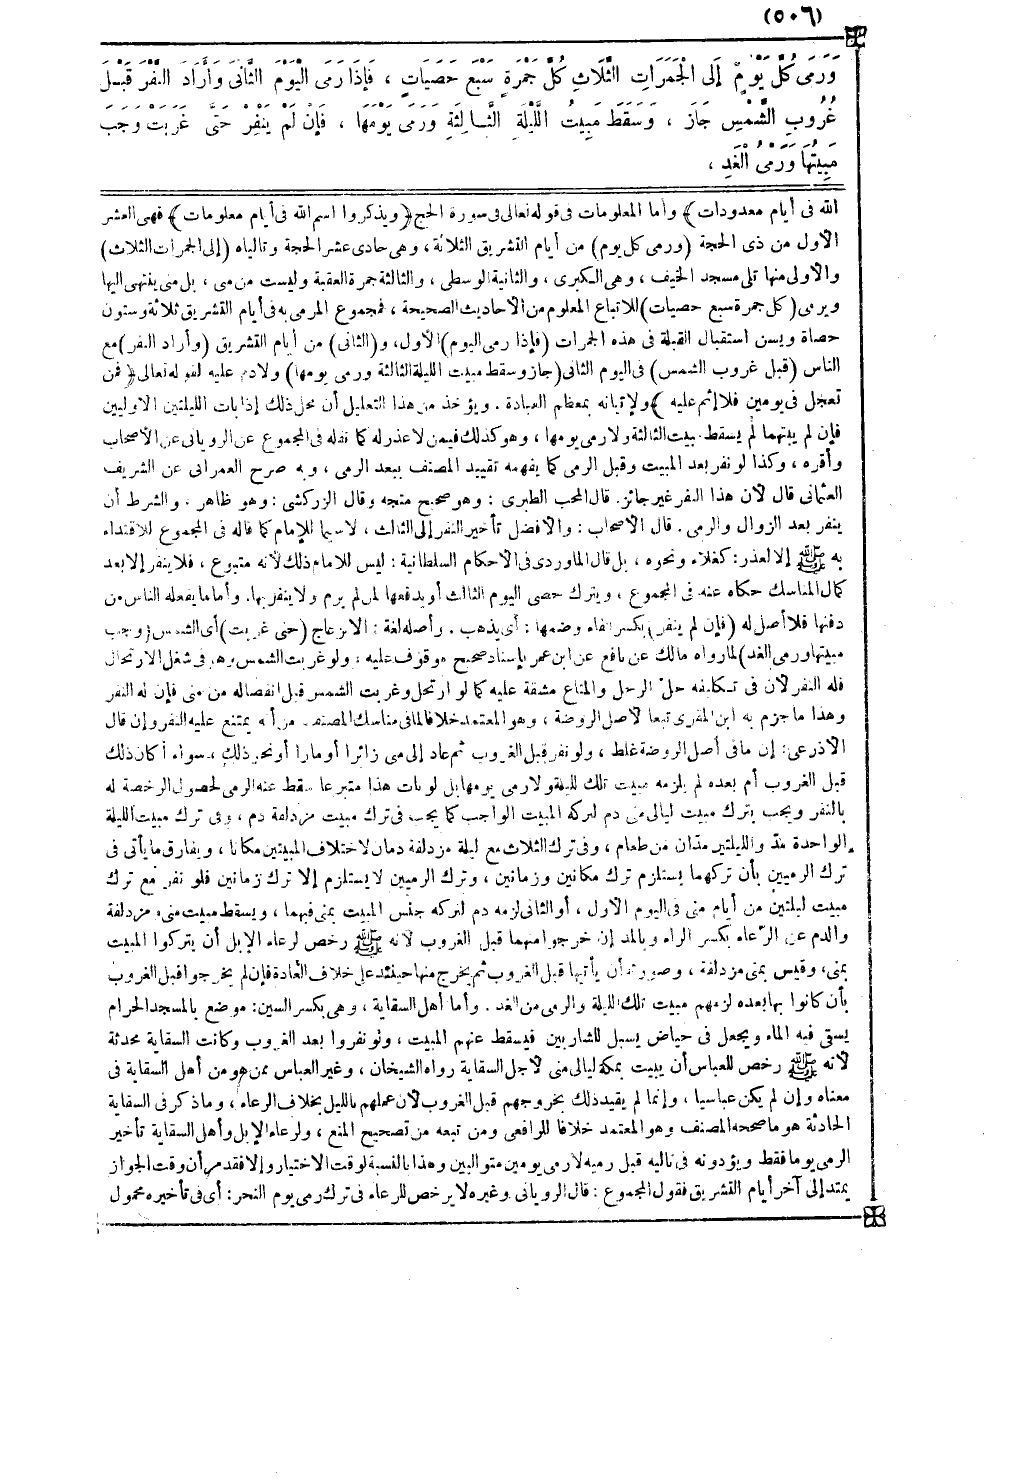 (٥٠٦)
وَرَمَى كُلَّ يَوْمٍ إِلَى الْجَمَرَاتِ الثَّلَاثِ كُلَّ جَمْرَةٍ سَبْعَ حَصَيَاتٍ ، فَإِذَا رَمَى الْيَوْمَ الثَّانِىَ وَأَرَادَ النَّفْرَ قَبْلَ
غُرُوبِ الشَّمْسِ جَازَ ، وَسَقَطَ مَبِيتُ اللَّيْلَةِ الثَّالِثَةِ وَرَمَى يَوْمَهَا ، فَإِنْ لَمْ يَنْفِرْ حَتَّى غَرَبَتْ وَجَبَ
مَبِيتُهَا وَرَمْىُ الْغَدِ ،
الله فى أيام معدودات ﴾ وأما المعلومات فى قوله تعالى فى سورة الحج ﴿ ويذكروا اسم الله فى أيام معلومات ﴾ فهى العشر
الأول من ذى الحجة (ورمى كل يوم) من أيام التشريق الثلاثة ، وهى حادى عشر الحجة وتالياه (إلى الجمرات الثلاث)
والأولى منها تلى مسجد الخيف ، وهى الكبرى ، والثانية الوسطى ، والثالثة جمرة العقبة وليست من منى ، بل منى ينتهى إليها
ويرمى (كل جمرة سبع حصيات) للاتباع المعلوم من الأحاديث الصحيحة ، فمجموع المرمى به فى أيام التشريق ثلاثة وستون
حصاة ويسن استقبال القبلة فى هذه الجمرات (فإذا رمى اليوم) الأول، و(الثانى) من أيام التشريق (وأراد النفر) مع
الناس (قبل غروب الشمس) فى اليوم الثانى (جاز وسقط مبيت الليلة الثالثة ورمى يومها) ولادم عليه لقوله تعالى ﴿ فمن
تعجل فى يومين فلا إثم عليه ﴾ ولإتيانه بمعظم العبادة . ويؤخذ من هذا التعليل أن محل ذلك إذا بات الليلتين الأوليين
فإن لم يبتهما لم يسقط مبيت الثالثة ولا رمى يومها ، وهو كذلك فيمن لا عذر له كما نقله فى المجموع عن الرويانى عن الأصحاب
وأقره ، وكذا لو نفر بعد المبيت وقبل الرمى كما يفهمه تقييد المصنف ببعد الرمى ، وبه صرح العمرانى عن الشريف
العثمانى قال لأن هذا النفر غير جائز. قال المحب الطبرى : وهو صحيح متجه وقال الزركشى : وهو ظاهر . والشرط أن
ينفر بعد الزوال والرمى . قال الأصحاب : والأفضل تأخير النفر إلى الثالث ، لاسيما للإمام كما قاله فى المجموع للاقتداء
به ﷺ إلا لعذر : كغلاء ونحوه ، بل قال الماوردى فى الأحكام السلطانية : ليس للإمام ذلك لأنه متبوع ، فلا ينفر إلا بعد
كمال المناسك حكاه عنه فى المجموع ، ويترك حصى اليوم الثالث أو يدفعها لمن لم يرم ولا ينفر بها. وأما ما يفعله الناس من
دفنها فلا أصل له (فإن لم ينفر) بكسر الفاء وضمها : أى يذهب . وأصله لغة : الانزعاج (حتى غربت) أى الشمس (وجب
مبيتها ورمى الغد) لما رواه مالك عن نافع عن ابن عمر بإسناد صحيح موقوف عليه : ولو غربت الشمس وهو فى شغل الارتحال
فله النفر لأن فى تكليفه حل الرحل والمتاع مشقة عليه كما لو ارتحل وغربت الشمس قبل انفصاله من منى فإن له النفر
وهذا ما جزم به ابن المقرى تبعا لأصل الروضة ، وهو المعتمد خلافا لما فى مناسك المصنف من أنه يمتنع عليه النفر وإن قال
الأذرعى : إن ما فى أصل الروضة غلط ، ولو نفر قبل الغروب ثم عاد إلى منى زائرا أو مارا أو نحو ذلك ، سواء أكان ذلك
قبل الغروب أم بعده لم يلزمه مبيت تلك الليلة ولا رمى يومها بل لو بات هذا متبرعا سقط عنه الرمى لحصول الرخصة له
بالنفر ويجب بترك مبيت ليالى منى دم لتركه المبيت الواجب كما يجب فى ترك مبيت مزدلفة دم ، وفى ترك مبيت الليلة
الواحدة مدّ والليلتين مدّان من طعام ، وفى ترك الثلاث مع ليلة مزدلفة دمان لاختلاف المبيتين مكانا ، ويفارق ما يأتى فى
ترك الرميين بأن تركهما يستلزم ترك مكانين وزمانين ، وترك الرميين لا يستلزم إلا ترك زمانين فلو نفر مع ترك
مبيت ليلتين من أيام منى فى اليوم الأول ، أو الثانى لزمه دم لتركه جنس المبيت بمنى فيهما ، ويسقط مبيت منى ومزدلفة
والدم عن الرّعاء بكسر الراء وبالمد إن خرجوا منهما قبل الغروب لأنه ﷺ رخص لرعاء الإبل أن يتركوا المبيت
بمنى، وقيس بمنى مزدلفة ، وصورته أن يأتيها قبل الغروب ثم يخرج منها حينئذ على خلاف العادة فإن لم يخرجوا قبل الغروب
بأن كانوا بها بعده لزمهم مبيت تلك الليلة والرمى من الغد . وأما أهل السقاية ، وهى بكسر السين : موضع بالمسجد الحرام
يسقى فيه الماء ويجعل فى حياض يسبل للشاربين فيسقط عنهم المبيت ، ولو نفروا بعد الغروب وكانت السقاية محدثة
لأنه ﷺ رخص للعباس أن يبيت بمكة ليالى منى لأجل السقاية رواه الشيخان ، وغير العباس ممن هو من أهل السقاية فى
معناه وإن لم يكن عباسيا ، وإنما لم يقيد ذلك بخروجهم قبل الغروب لأن عملهم بالليل بخلاف الرعاء ، وما ذكر فى السقاية
الحادثة هو ما صححه المصنف وهو المعتمد خلافا للرافعى ومن تبعه من تصحيح المنع ، ولرعاء الإبل وأهل السقاية تأخير
الرمى يوما فقط ويؤدونه فى تاليه قبل رميه لا رمى يومين متواليين وهذا بالنسبة لوقت الاختيار وإلا فقد مر أن وقت الجواز
يمتد إلى آخر أيام التشريق فقول المجموع : قال الرويانى وغيره لا يرخص للرعاء فى ترك رمى يوم النحر : أى فى تأخيره محمول